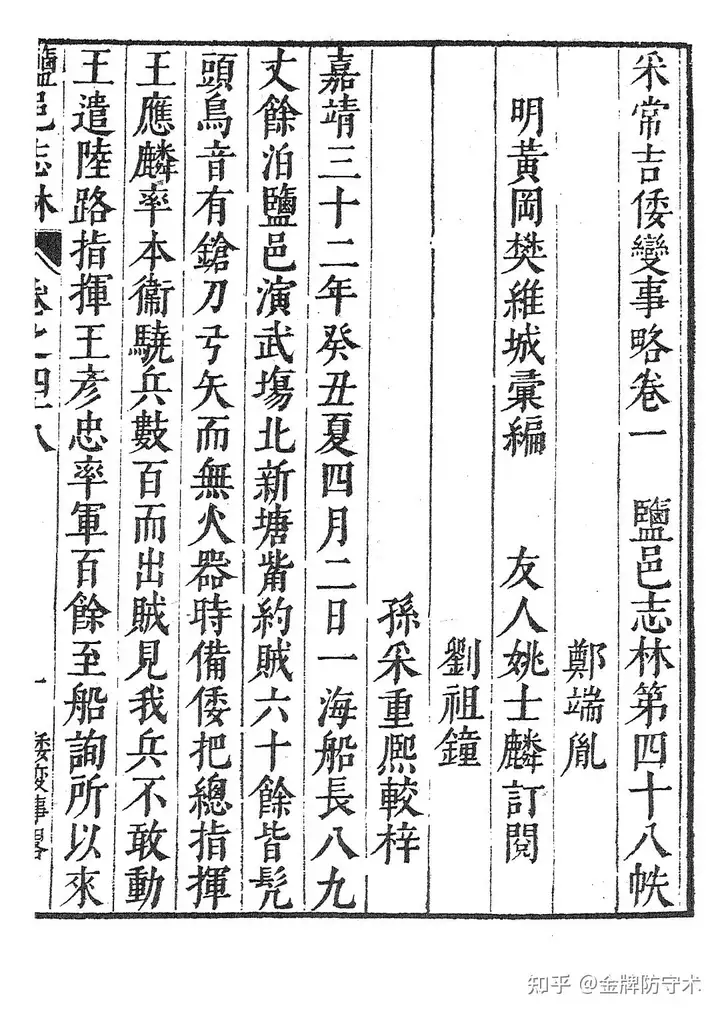 采常吉倭變事略卷一 鹽邑志林第四十八帙
鄭端胤
明黃岡樊維城彙編 友人姚士麟訂閱
劉祖鐘
孫采重熙較梓
嘉靖三十二年癸丑夏四月二日一海船長八九
丈餘泊鹽邑演武塲北新塘觜約賊六十餘皆髠
頭鳥音有鎗刀弓矢而無火器時備倭把總指揮
王應麟率本衞驍兵數百而出賊見我兵不敢動
王遣陸路指揮王彥忠率軍百餘至船詢所以來
鹽邑志林 卷之四十八 一 倭變事略
知乎 @金牌防守术